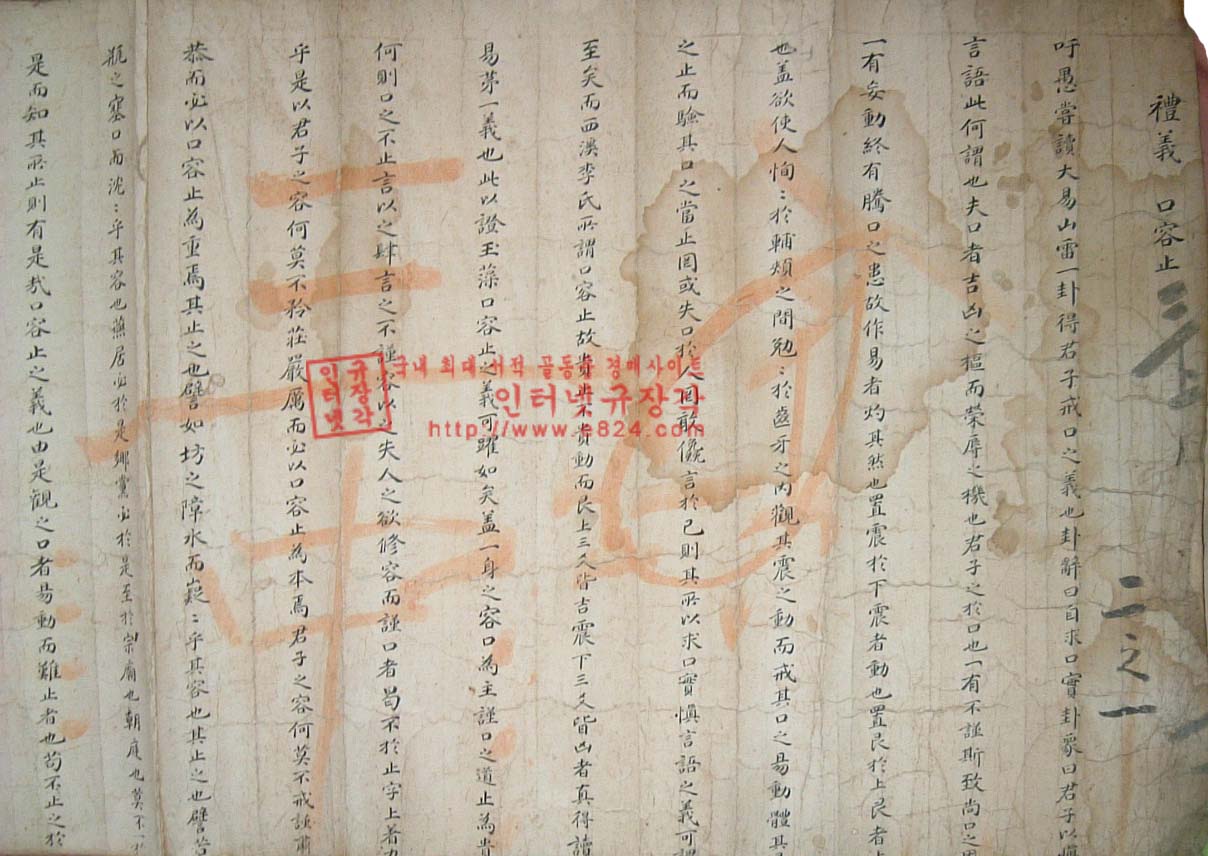 禮義 口容止
二之一
吁愚嘗讀大易山雷一卦得君子戒口之義也卦辭曰自求口實卦象曰君子以愼
言語此何謂也夫口者吉凶之樞而榮辱之機也君子之於口也一有不謹斯致尚口之
一有妄動終有騰口之患故作易者灼其然也置震於下震者動也置艮於上艮者
也盖欲使人恂〻於輔頰之間勉〻於齒牙之內觀其震之動而戒其口之易動體其
之止而驗其口之當止罔或失口於人罔敢儳言於己則其所以求口實愼言語之義可
至矣而西溪李氏所謂口容止故貴止不貴動而艮上三爻皆吉震下三爻皆凶者真得讀
易第一義也此以證玉藻口容止之義可躍如矣盖一身之容口為主謹口之道止為貴
何則口之不止言以之肆言之不謹容以之失人之欲修容而謹口者曷不於止字上着
乎是以君子之容何莫不矜莊嚴厲而必以口容止為本焉君子之容何莫不戒謹肅
恭而必以口容止為重焉其止之也譬如坊之障水而嶷〻乎其容也其止之也譬若
瓶之塞口而沈〻乎其容也燕居必於是鄉黨必於是至於宗廟也朝廷也莫不
是而知其所止則有是哉口容止之義也由是觀之口者易動而難止者也苟不止之於
규장각
인터넷
국내 최대 서적 골동품 경매사이트
인터넷규장각
http://www.e824.com